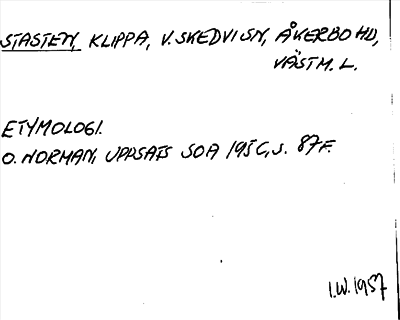 STASTEN, KLIPPA, V. SKEDVI SN, ÅKERBO HD,
VÄSTM. L.
ETYMOLOGI.
O. NORMAN, UPPSATS SOA 195 S. 87 F.
I.W. 1957